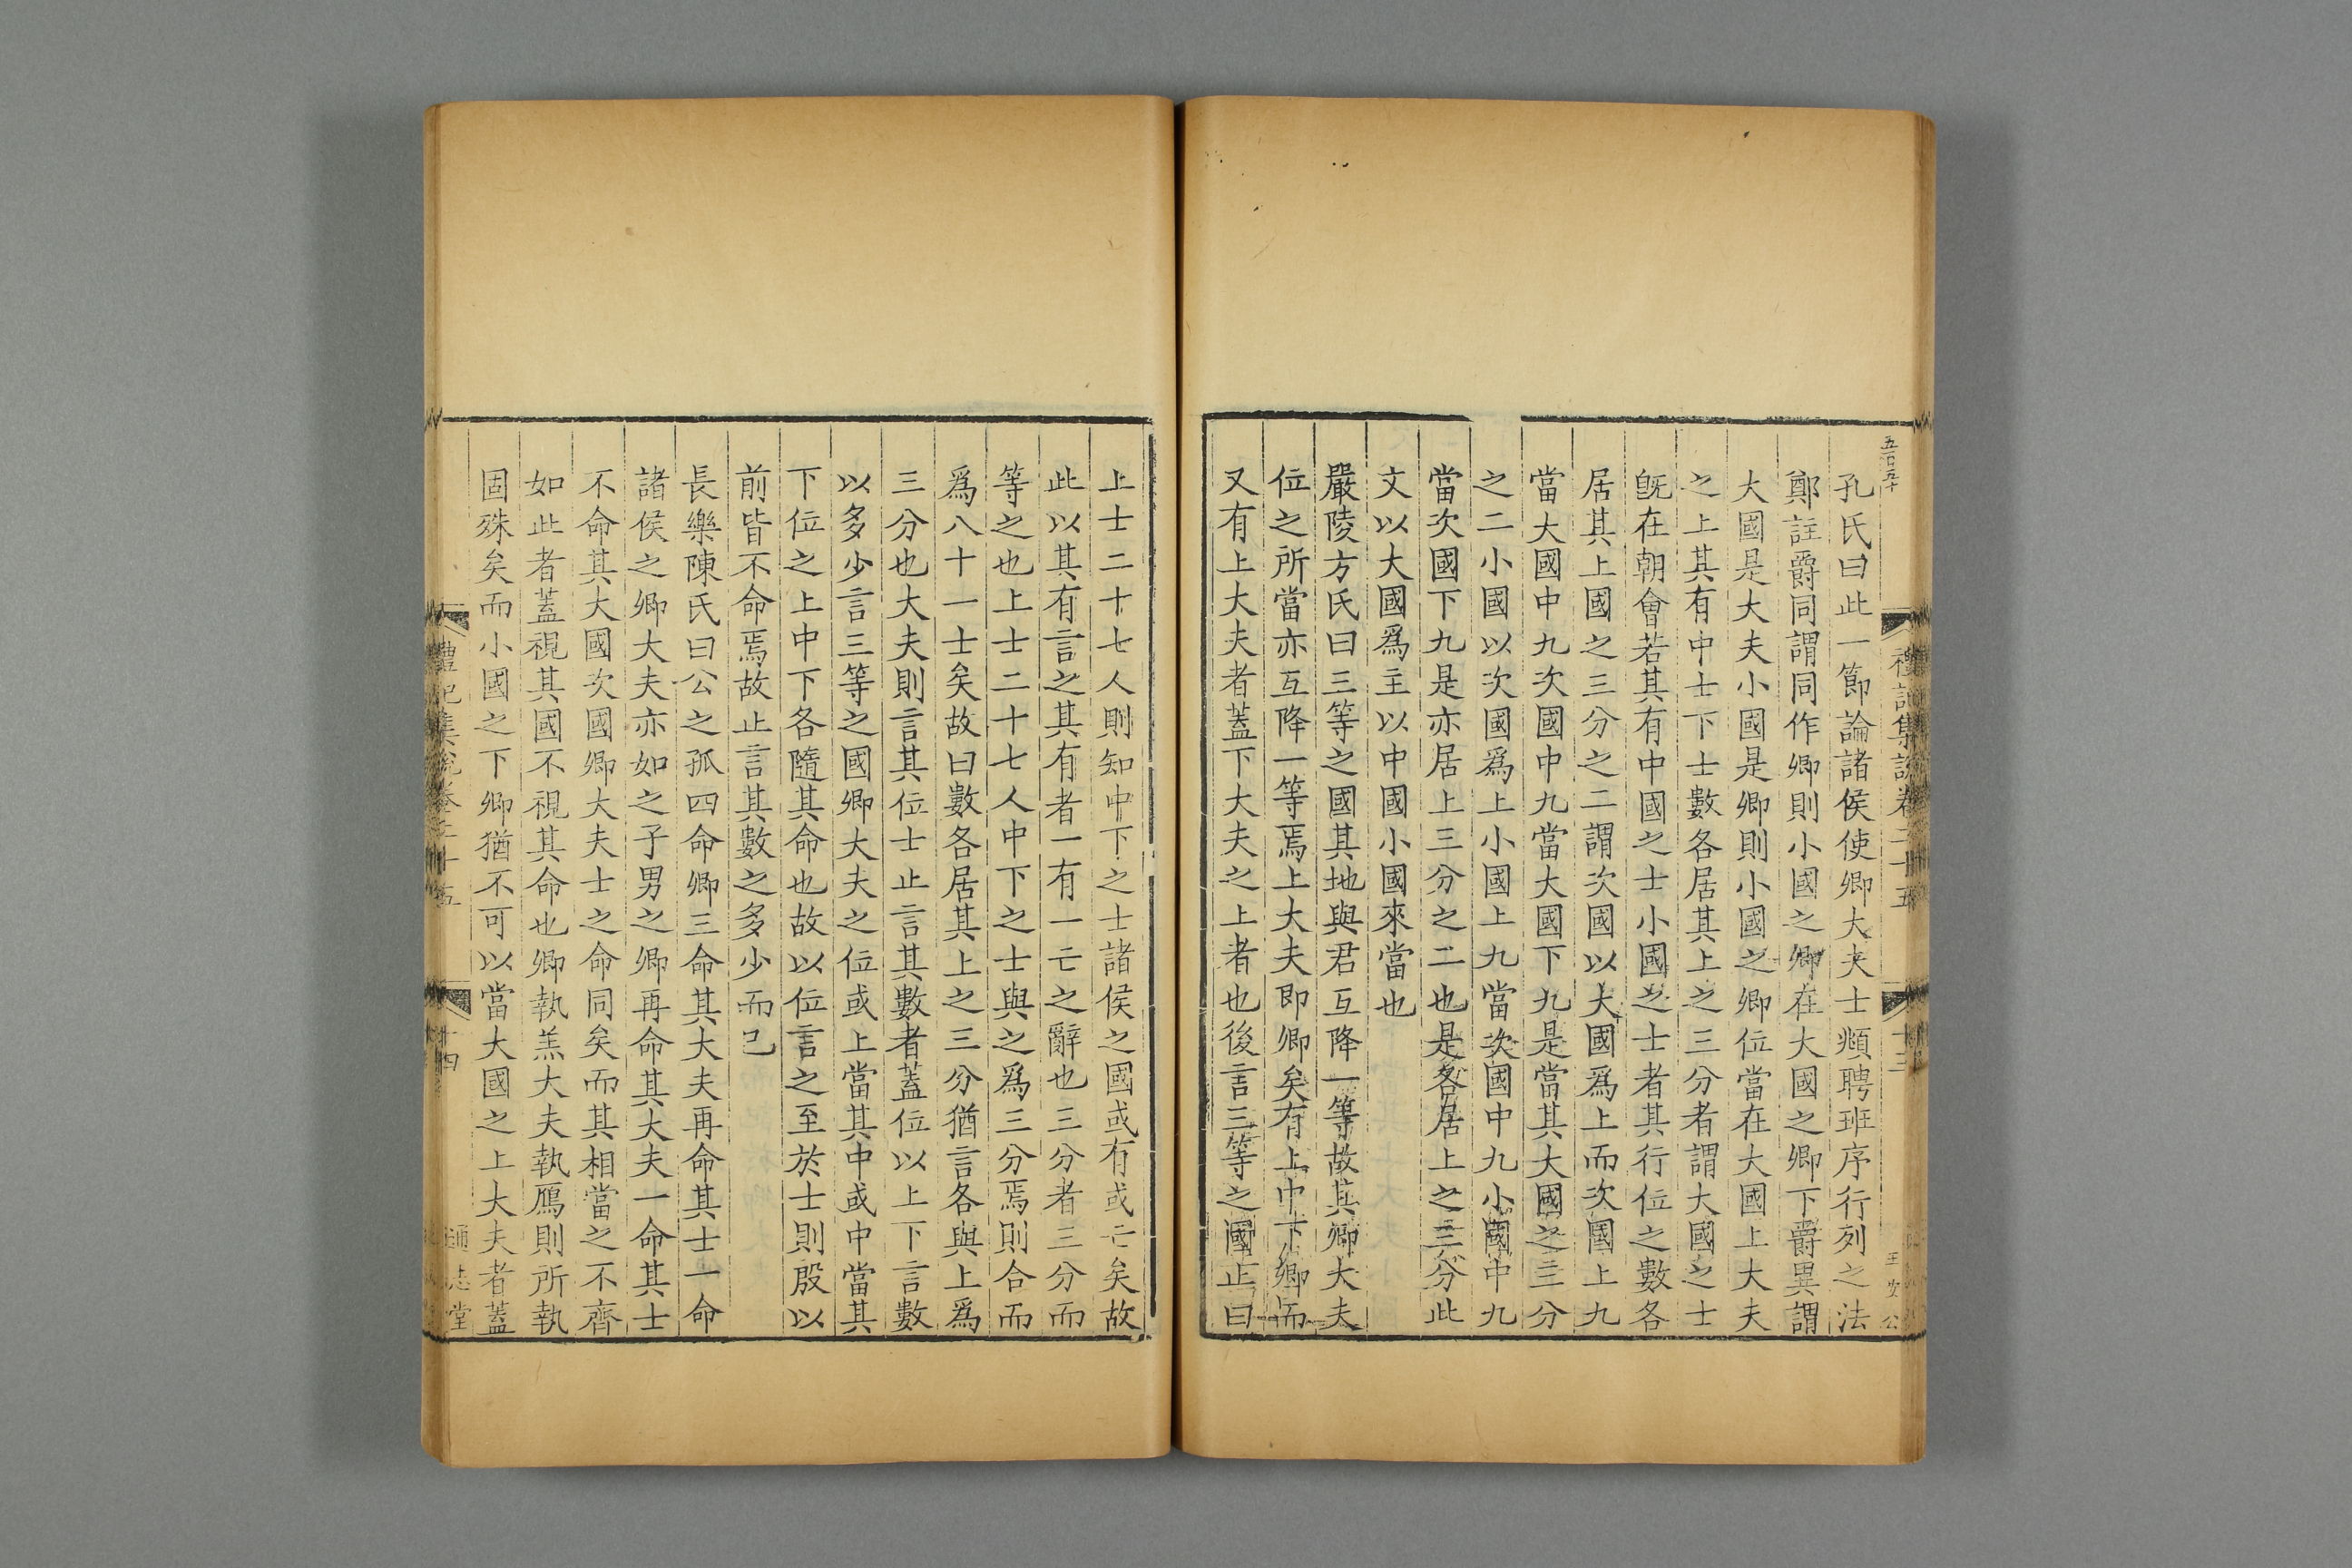 孔氏曰此一節論諸侯使卿大夫士頫聘班序行列之法
鄭註爵同謂同作卿則小國之卿在大國之卿下爵異謂
大國是大夫小國是卿則小國之卿位當在大國上大夫
之上其有中士下士數各居其上之三分者謂大國之士
旣在朝會若其有中國之士小國之士者其行位之數各
居其上國之三分之二謂次國以大國爲上而次國上九
當大國中九次國中九當大國下九是當其大國之三分
之二小國以次國爲上小國上九當次國中九小國中九
當次國下九是亦居上三分之二也是各居上之三分此
文以大國爲主以中國小國來當也
嚴陵方氏曰三等之國其地與君互降一等故其卿大夫
位之所當亦互降一等焉上大夫即卿矣有上中下卿而
又有上大夫者蓋下大夫之上者也後言三等之國止曰
禮記集說卷二十五
十三
上士二十七人則知中下之士諸侯之國或有或亡矣故
此以其有言之其有者一有一亡之辭也三分者三分而
等之也上士二十七人中下之士與之爲三分焉則合而
爲八十一士矣故曰數各居其上之三分猶言各與上爲
三分也大夫則言其位士止言其數者蓋位以上下言數
以多少言三等之國卿大夫之位或上當其中或中當其
下位之上中下各隨其命也故以位言之至於士則殷以
前皆不命焉故止言其數之多少而已
長樂陳氏曰公之孤四命卿三命其大夫再命其士一命
諸侯之卿大夫亦如之子男之卿再命其大夫一命其士
不命其大國次國卿大夫士之命同矣而其相當之不齊
如此者蓋視其國不視其命也卿執羔大夫執鴈則所執
固殊矣而小國之下卿猶不可以當大國之上大夫者蓋
禮記集說卷二十五
十四
通志堂